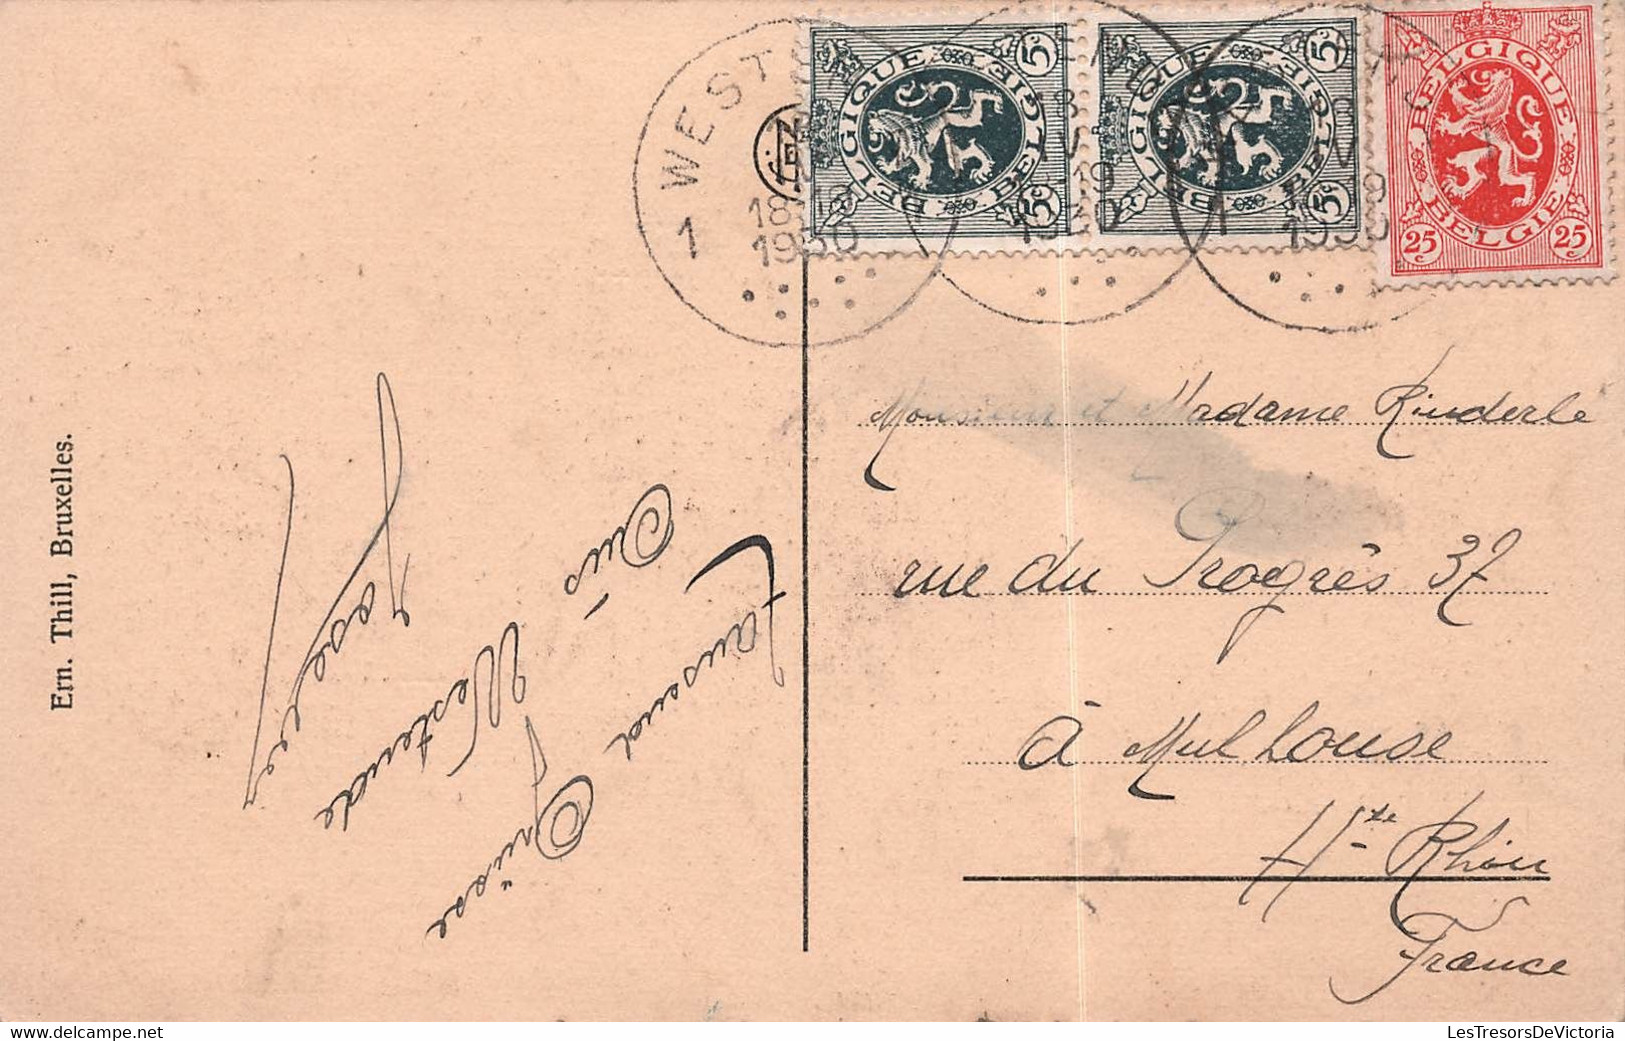 BELGIQUE BELGIË 5c 5c
BELGIQUE BELGIË 5c 5c
BELGIQUE
BELGIE
25 25
1 WEST
18-19
1930
Monsieur et Madame Rinderle
rue du Progrès 37
à Mulhouse
Hte Rhin
France
Tausend Grüsse
aus Westende
Ern. Thill, Bruxelles.
LesTresorsDeVictoria
delcampe.net